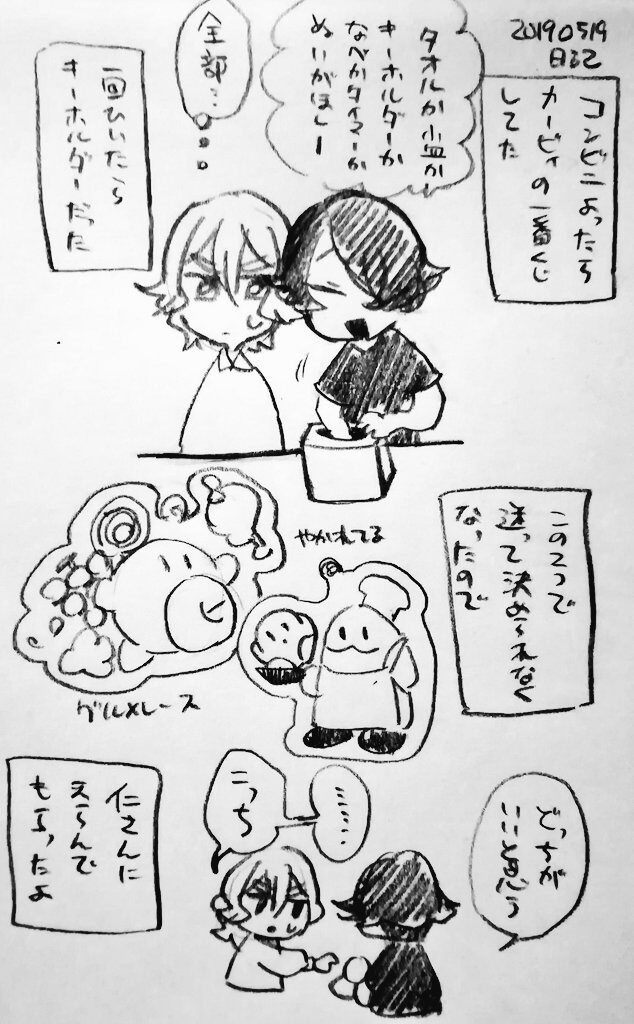 20190519
日記
コンビニよったら
カービィの一番くじ
してた
タオルか小皿か
キーホルダーか
なべかタイマーか
ぬいがほしー
全部…
一回ひいたら
キーホルダーだった
この2つで
迷って決められなく
なったので
やかれてる
グルメレース
どっちが
いいと思う
………
こっち
仁さんに
えらんで
もらったよ